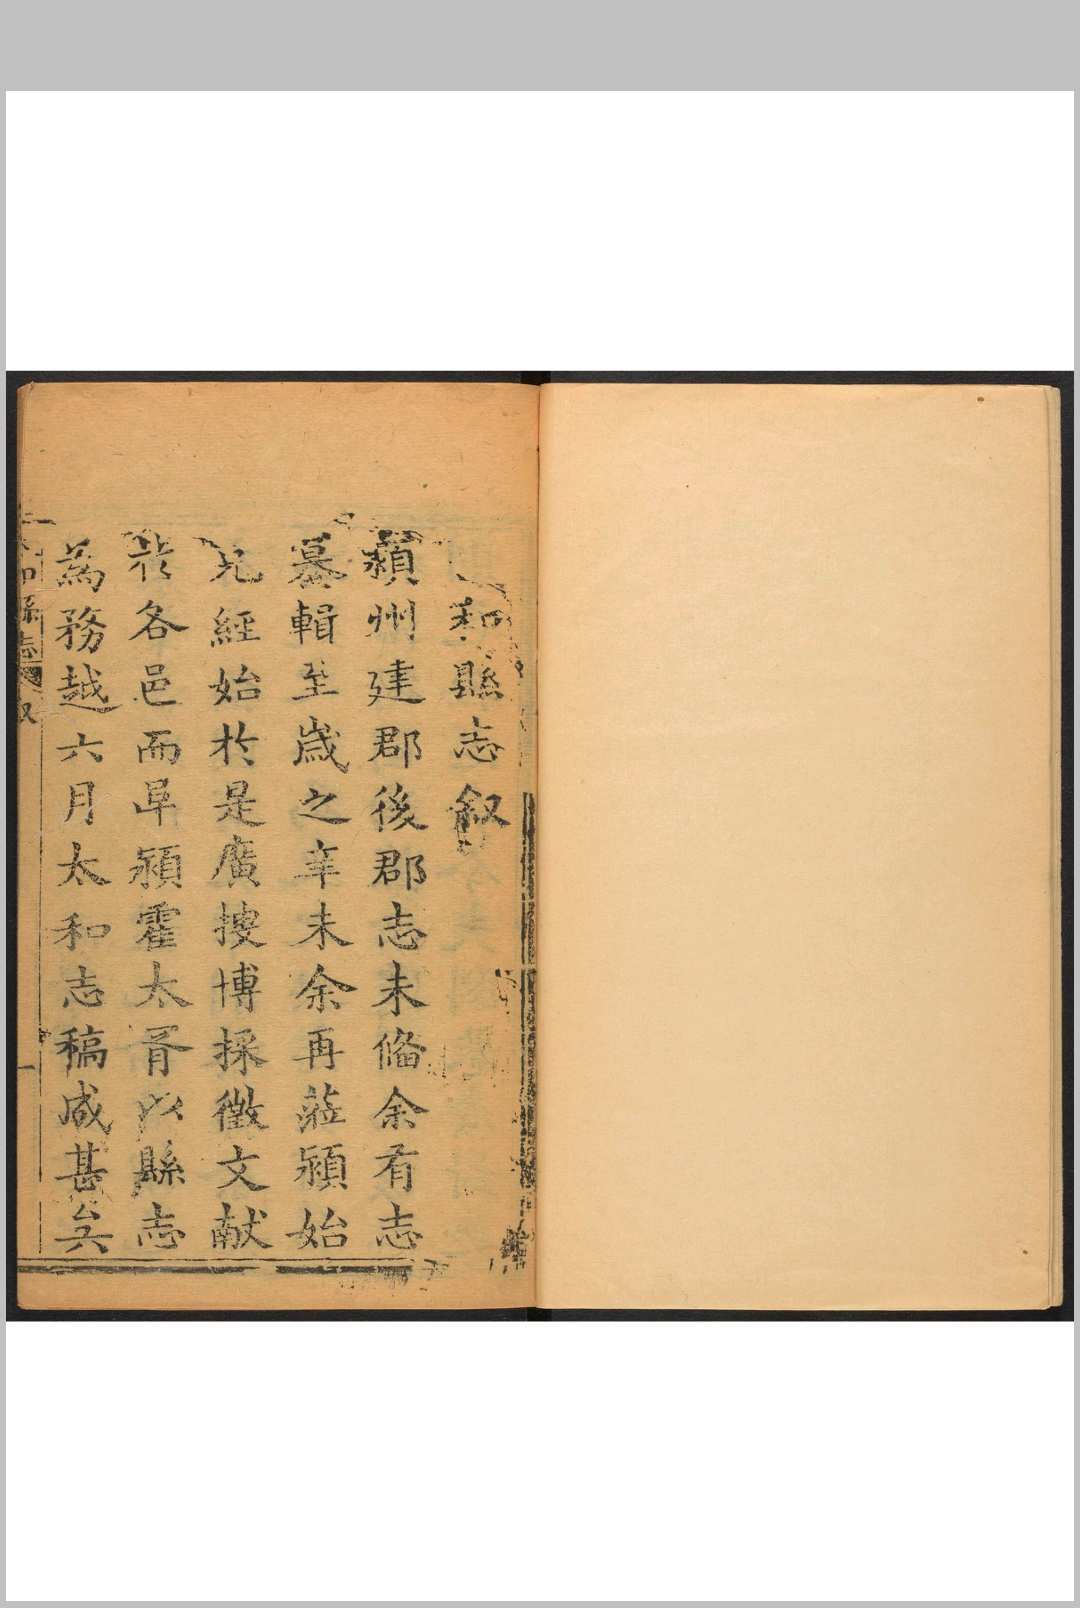 和縣志叙
潁州建郡後郡志未俻余有志
纂輯至歳之辛未余再蒞潁始
克經始扵是廣搜博採徵文献
扵各邑而阜潁霍太胥以縣志
為務越六月太和志稿成甚矣
和縣志
叙
一